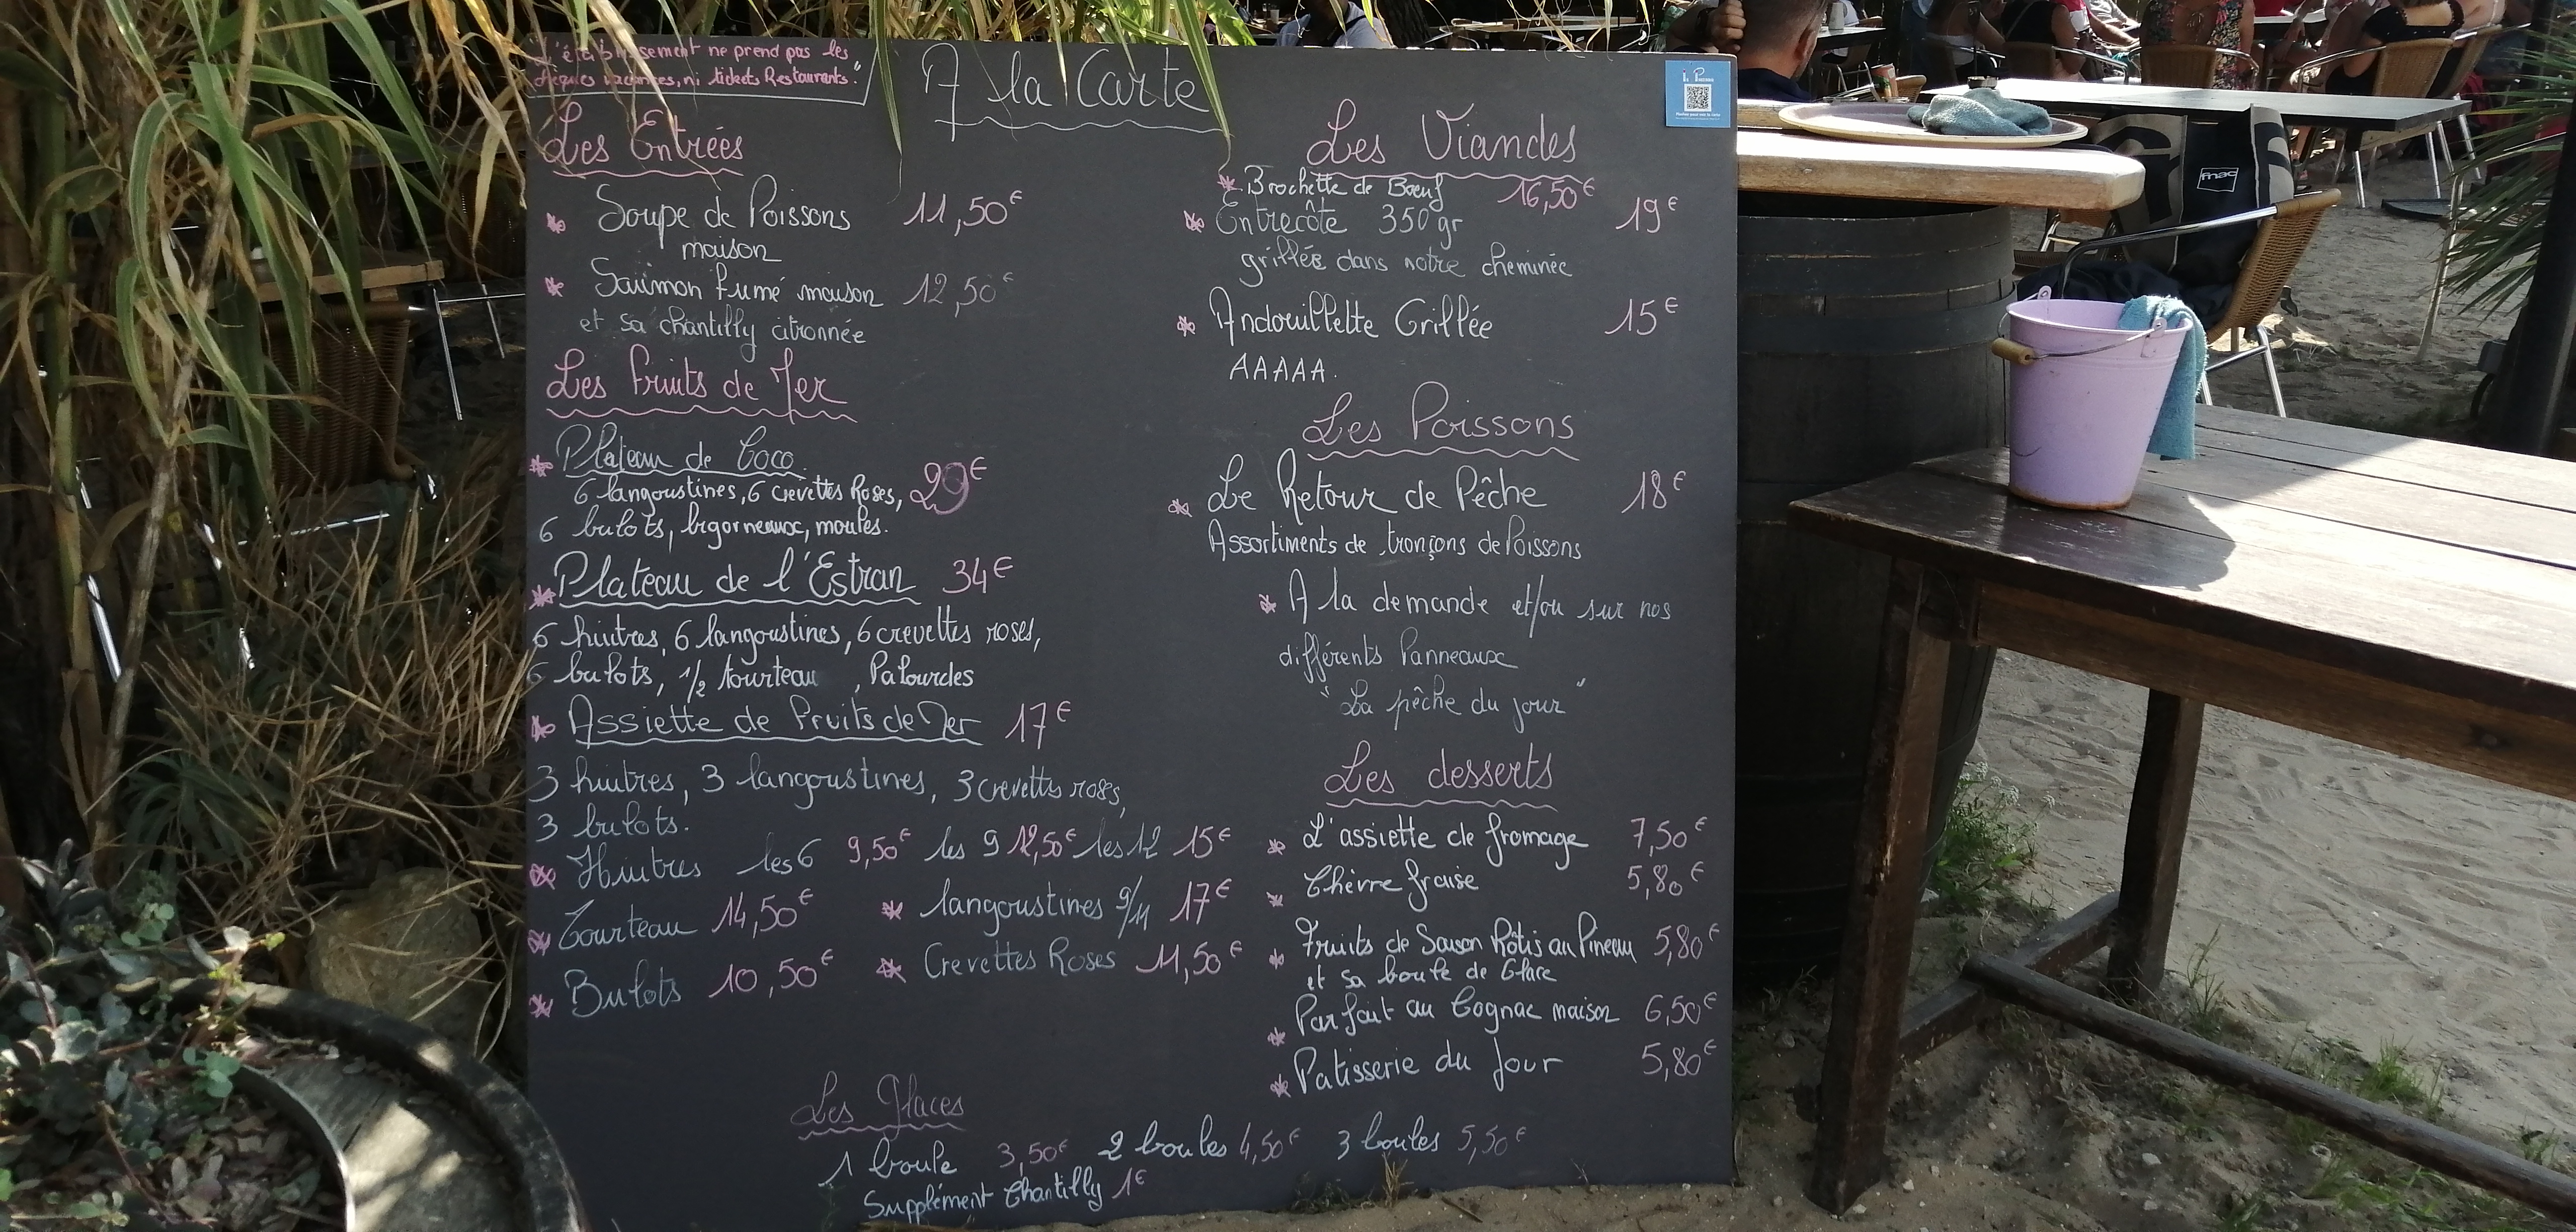 L'établissement ne prend pas les
chèques vacances, ni tickets Restaurants."
A la Carte
Les Entrées
Soupe de Poissons 11,50€
maison
Saumon fumé maison 12,50€
et sa chantilly citronnée
Les fruits de Mer
Plateau de Coco
6 langoustines, 6 crevettes Roses, 29€
6 bulots, bigorneaux, moules.
Plateau de l'Estran 34€
6 huitres, 6 langoustines, 6 crevettes roses,
6 bulots, 1/2 tourteau , Palourdes
Assiette de Fruits de Mer 17€
3 huitres, 3 langoustines, 3 crevettes roses,
3 bulots.
Huitres les 6 9,50€ les 9 12,50€ les 12 15€
Tourteau 14,50€ langoustines 9/11 17€
Bulots 10,50€ Crevettes Roses 11,50€
Les Viandes
Brochette de Bœuf 16,50€
Entrecôte 350 gr 19€
grillée dans notre cheminée
Andouillette Grillée 15€
AAAAA.
Les Poissons
Le Retour de Pêche 18€
Assortiments de tronçons de Poissons
A la demande et/ou sur nos
différents Panneaux
"La pêche du jour"
Les desserts
L'assiette de fromage 7,50€
Chèvre fraise 5,80€
Fruits de Saison Rôtis au Pineau 5,80€
et sa boule de Glace
Parfait au Cognac maison 6,50€
Patisserie du Jour 5,80€
Les Glaces
1 boule 3,50€ 2 boules 4,50€ 3 boules 5,50€
Supplément Chantilly 1€
fnac